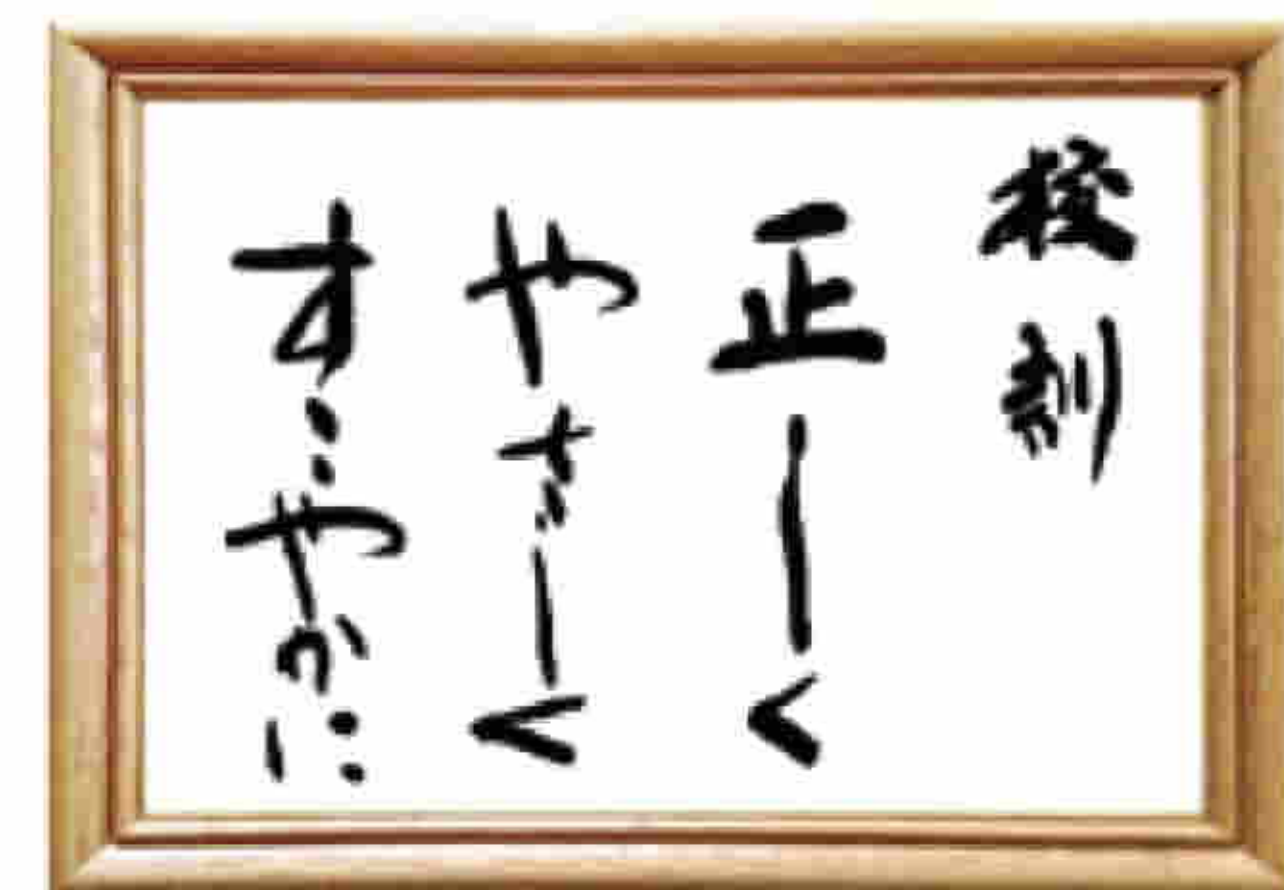 校訓
正しく
やさしく
すこやかに